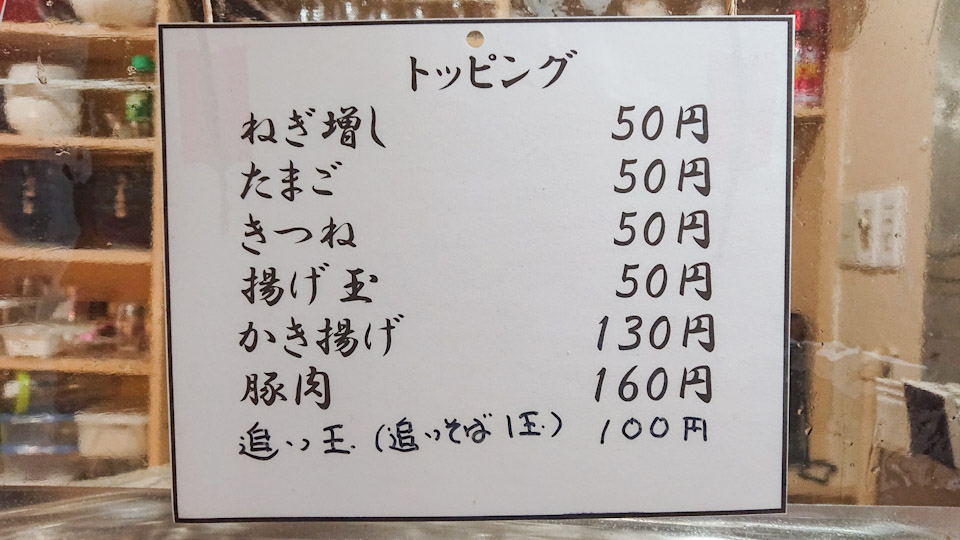 トッピング
ねぎ増し 50円
たまご 50円
きつね 50円
揚げ玉 50円
かき揚げ 130円
豚肉 160円
追っ玉.(追っそば1玉.) 100円